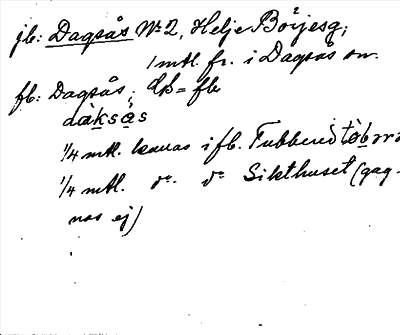 jb: Dagsås No 2, Helje Börjesg;
1 mtl. fr. i Dagsås sn.
fb: Dagsås; dB = fb
dàksås
1/4 mtl. kallas i fb. Tubbered
1/4 mtl. do. do Sikthuset (gag-
nas ej)